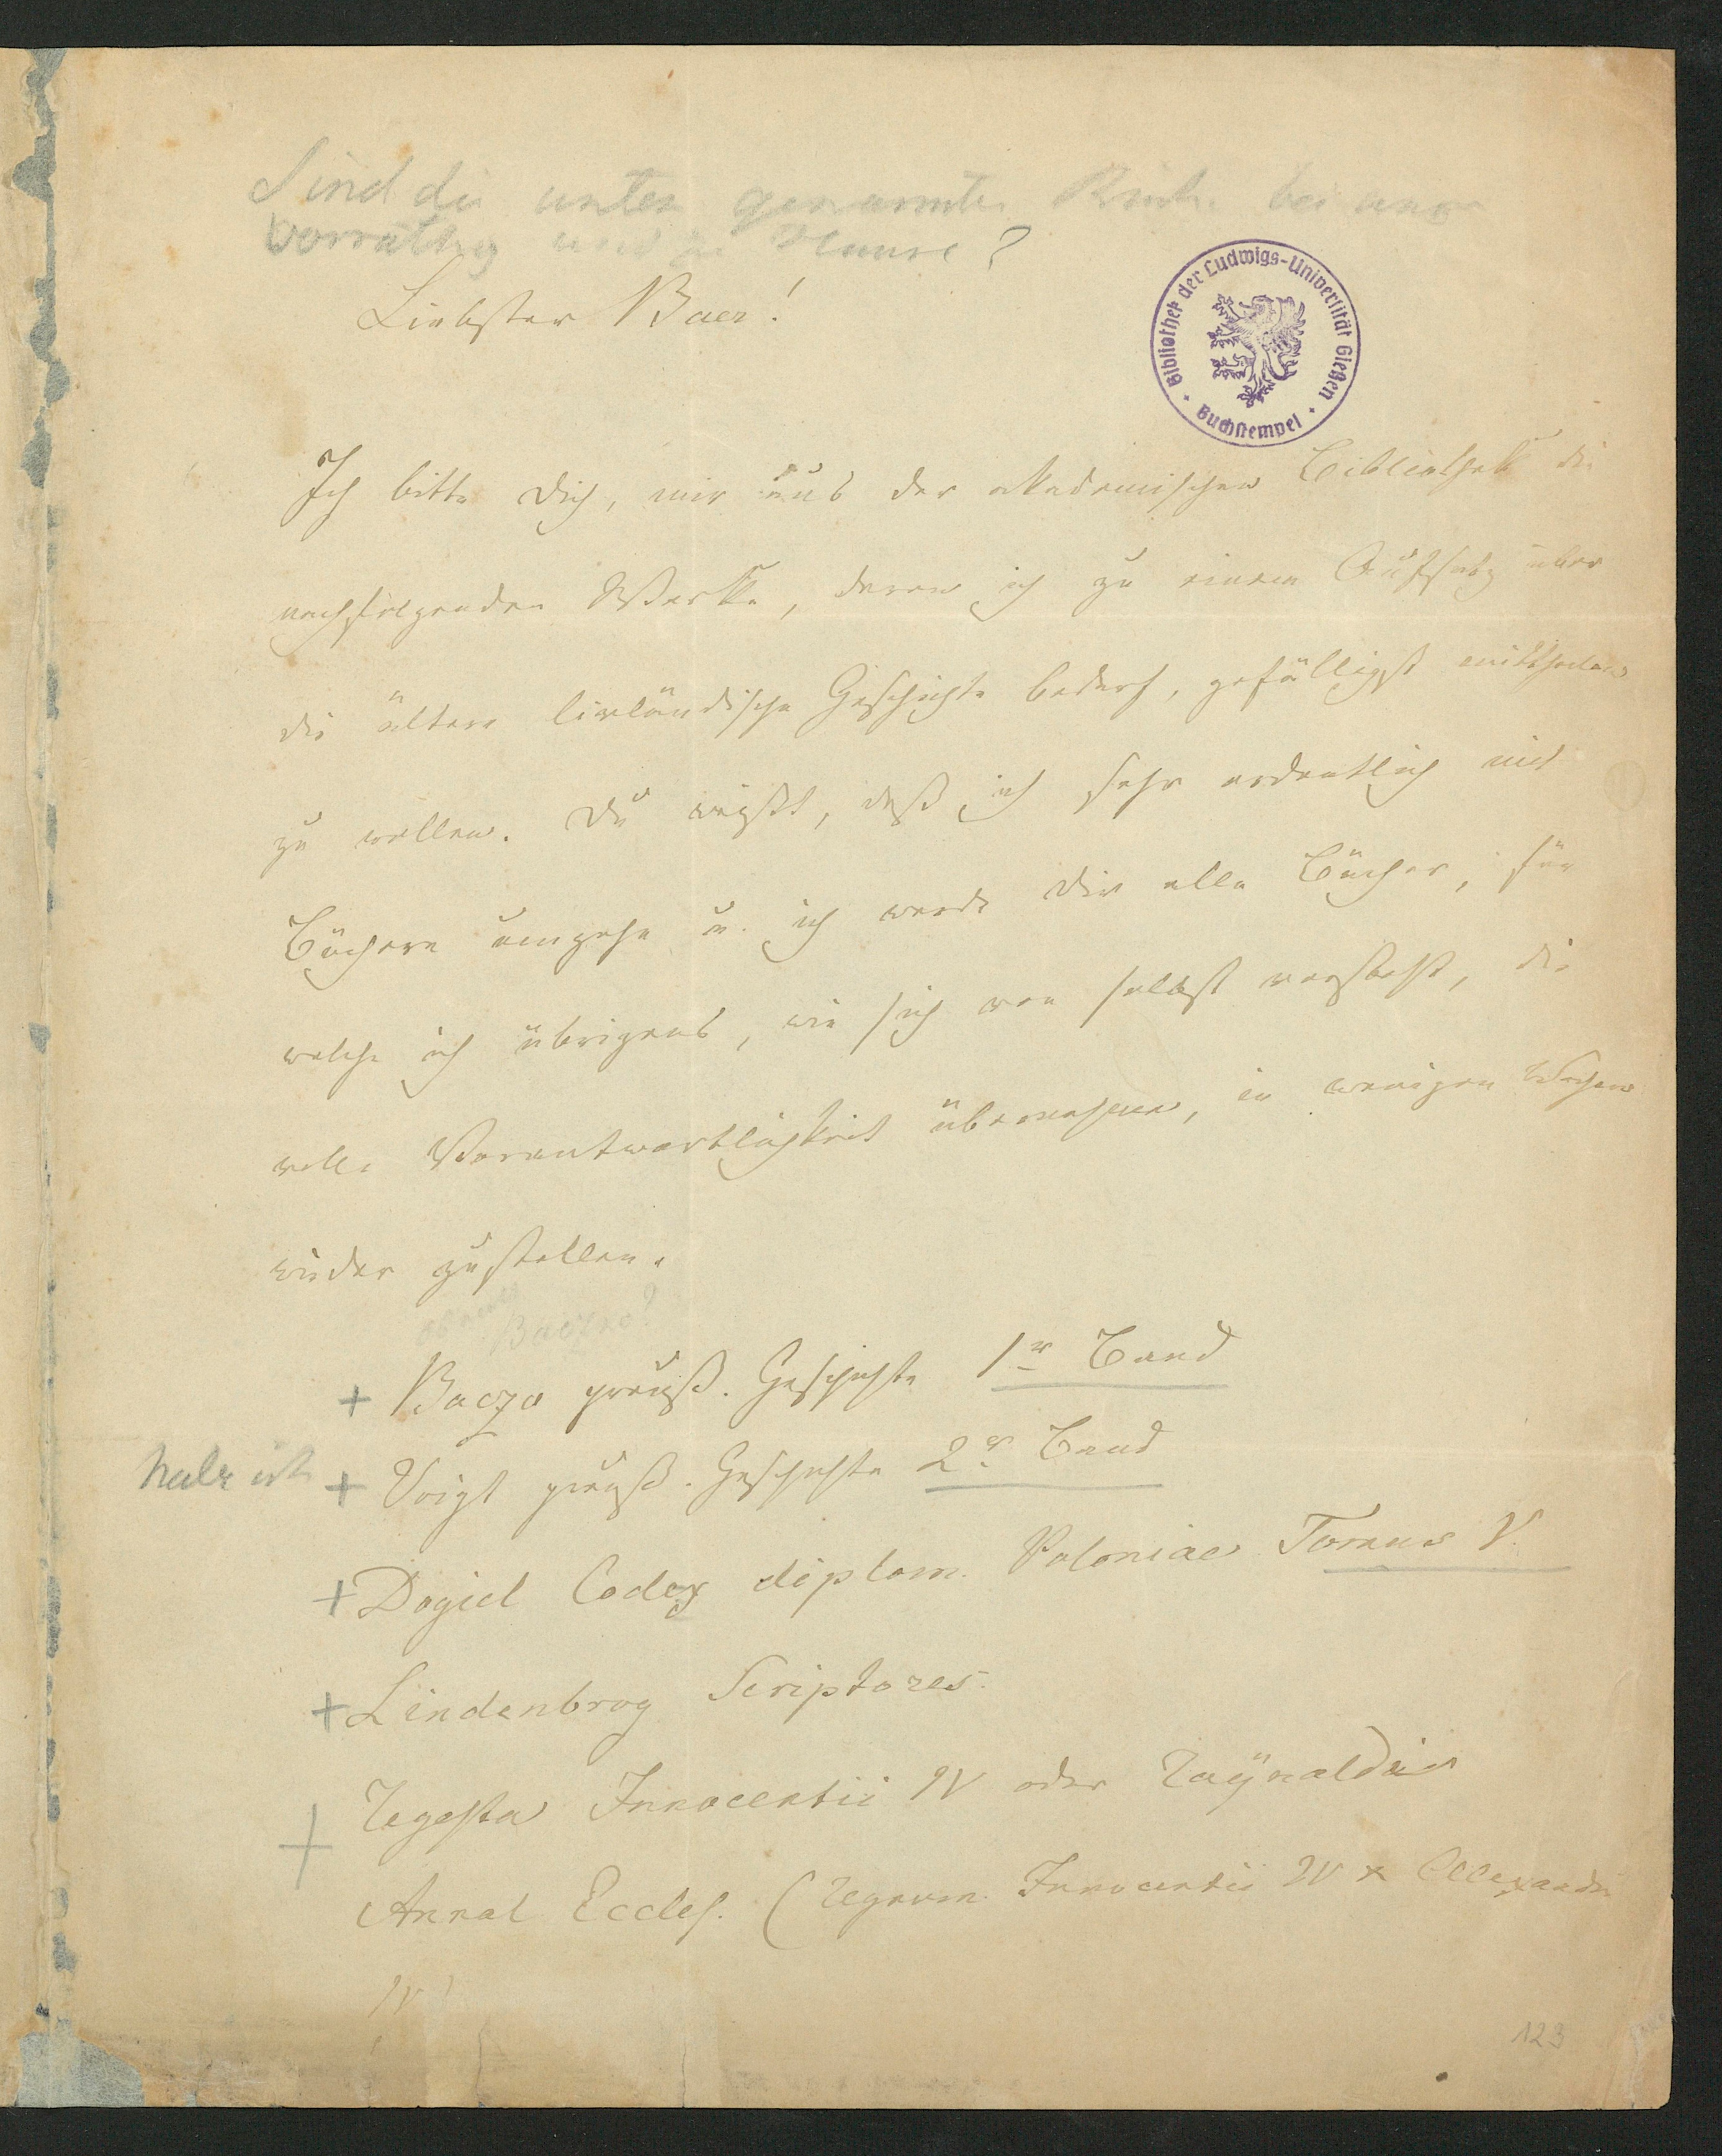 Sind die unten genannten Büch. bei uns
vorräthig und zu Hause?
Liebster Baer!
Bibliothek der Ludwigs-Universität Gießen
Buchstempel
Ich bitte Dich, mir aus der akademischen Bibliothek die
nachfolgenden Werke, deren ich zu einem Aufsatz über
die ältere livländische Geschichte bedarf, gefälligst mittheilen
zu wollen. Du weißt, daß ich sehr ordentlich mit
Büchern umgehe u. ich werde Dir alle Bücher, für
welche ich übrigens, wie sich von selbst versteht, die
volle Verantwortlichkeit übernehme, in wenigen Wochen
wieder zustellen.
Baczko?
+ Baczo preuß. Geschichte 1r Band
habe ich + Voigt preuß. Geschichte 2r Band
+ Dogiel Codex diplom. Poloniae Tomus V.
+ Lindenbrog Scriptores.
+ Regesta Innocentii IV oder Raÿnaldus
Annal Eccles. (regnum. Innocentii IV & Allexandri
IV)
123